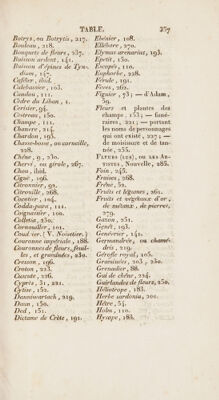 TABLE. 357
Botrys, ou Botrytis, 217.
Bouleau, 218.
Bouquets de fleurs, 237.
Buisson ardent, 141.
Buisson d'épines de Tyndium, 147.
Caféier, ibid.
Calebassier, 103.
Candou, 111.
Cèdre du Liban, 1.
Cerisier, 94.
Cestreau, 150.
Champac, 111.
Chanvre, 214.
Chardon, 193.
Chasse-bosse, ou cornaille, 228.
Chêne, 9, 230.
Chervi, ou girole, 267.
Chou, ibid.
Ciguë, 196.
Citronnier, 92.
Citrouille, 268.
Cocotier, 104.
Codda-pana, 111.
Coignassier, 100.
Colletia, 230.
Cornouiller, 101.
Coud'rier. (V. Noisetier.)
Couronne impériale, 188.
Couronnes de fleurs, feuilles, et graminées, 230.
Cresson, 196.
Croton, 223.
Cuscute, 226.
Cyprès, 31, 221.
Cytise, 152.
Damawartach, 219.
Daun, 150.
Ded, 151.
Dictame de Crète, 191.
Ebénier, 108.
Ellébore, 270.
Elymus arenarius, 193.
Epetit, 150.
Escopés, 110.
Euphorbe, 228.
Férule, 191.
Fèves, 262.
Figuier, 73; — d'Adam, 59.
Fleurs et plantes des champs, 153; — funéraires, 232; — portant les noms de personnages qui ont existé, 237; — de moisissure et de tannée, 235.
FLEURS (LES), OU LES ARTISTES, Nouvelle, 285.
Foin, 245.
Fraises, 268.
Frêne, 52.
Fruits et légumes, 261.
Fruits et végétaux d'or, de métaux, de pierres, 279.
Gazon, 251.
Genêt, 193.
Genévrier, 141.
Germandrée, ou chamédris, 219.
Gérofle royal, 105.
Graminées, 203, 230.
Grenadier, 88.
Gui de chêne, 224.
Guirlandes de fleurs, 230.
Héliotrope, 183.
Herbe sardonia, 201.
Hêtre, 54.
Holm, 110.
Hysope, 183.